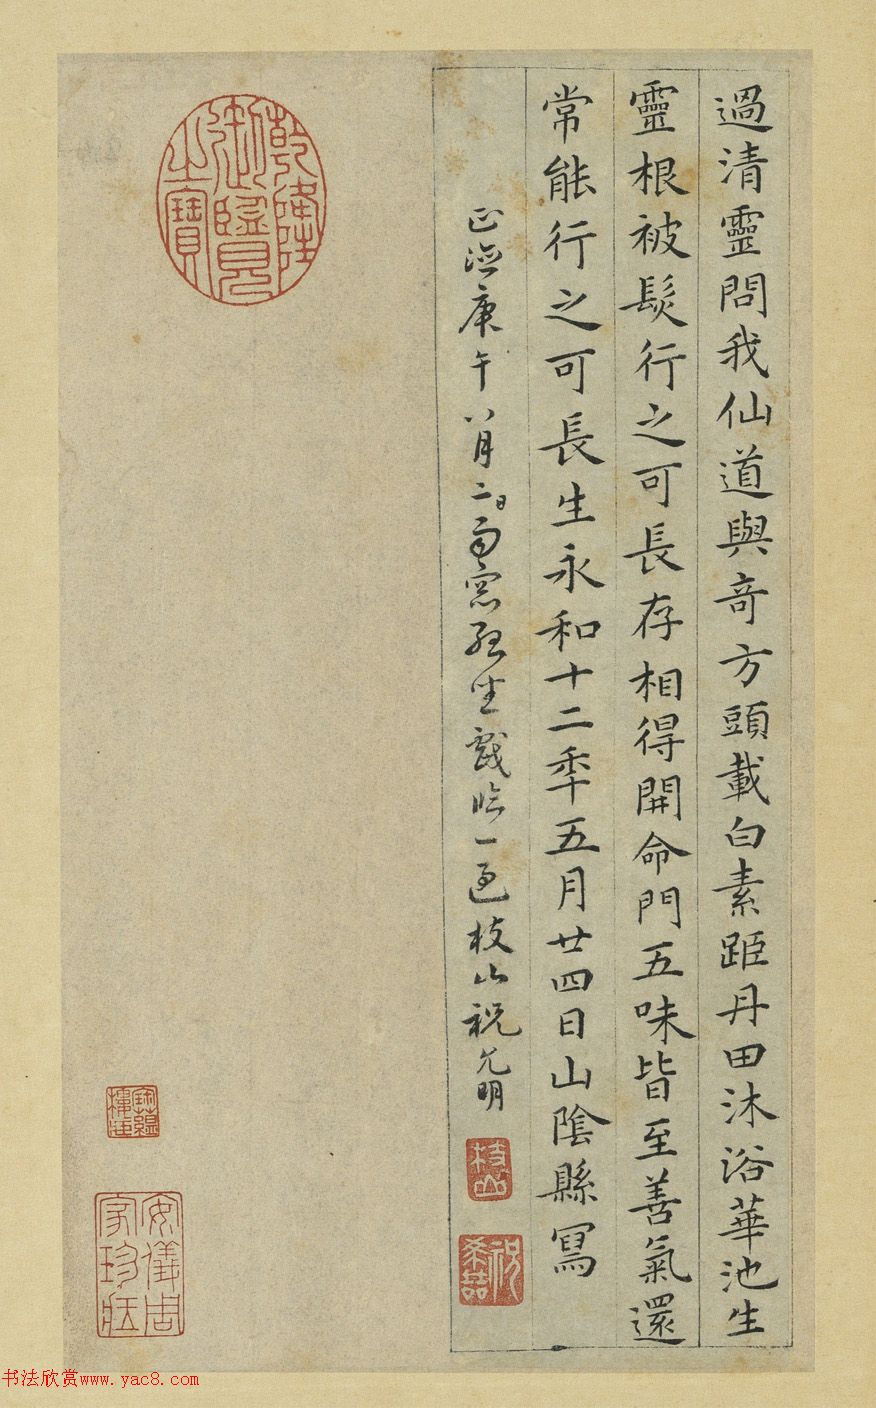 過清靈問我仙道與奇方頭載白素距丹田沐浴華池生
靈根被髮行之可長存相得開命門五味皆至善氣還
常能行之可長生永和十二秊五月廿四日山陰縣寫
正德庚午八月二日雨窓坐戲臨一過枝山祝允明
枝山
祝希哲
乾隆御覽之寶
安儀周家珍藏
书法欣赏www.yac8.com